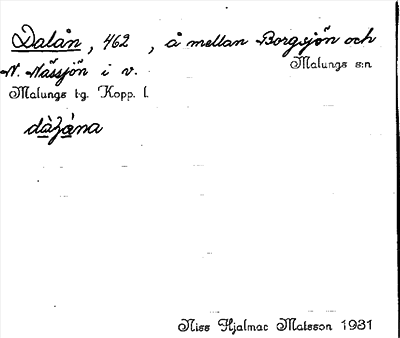 Dalån, 462, å mellan Borgsjön och
N. Nässjön i v. Malungs s:n
Malungs t-g. Kopp. l.
dàlå̀na
Niss Hjalmar Matsson 1931